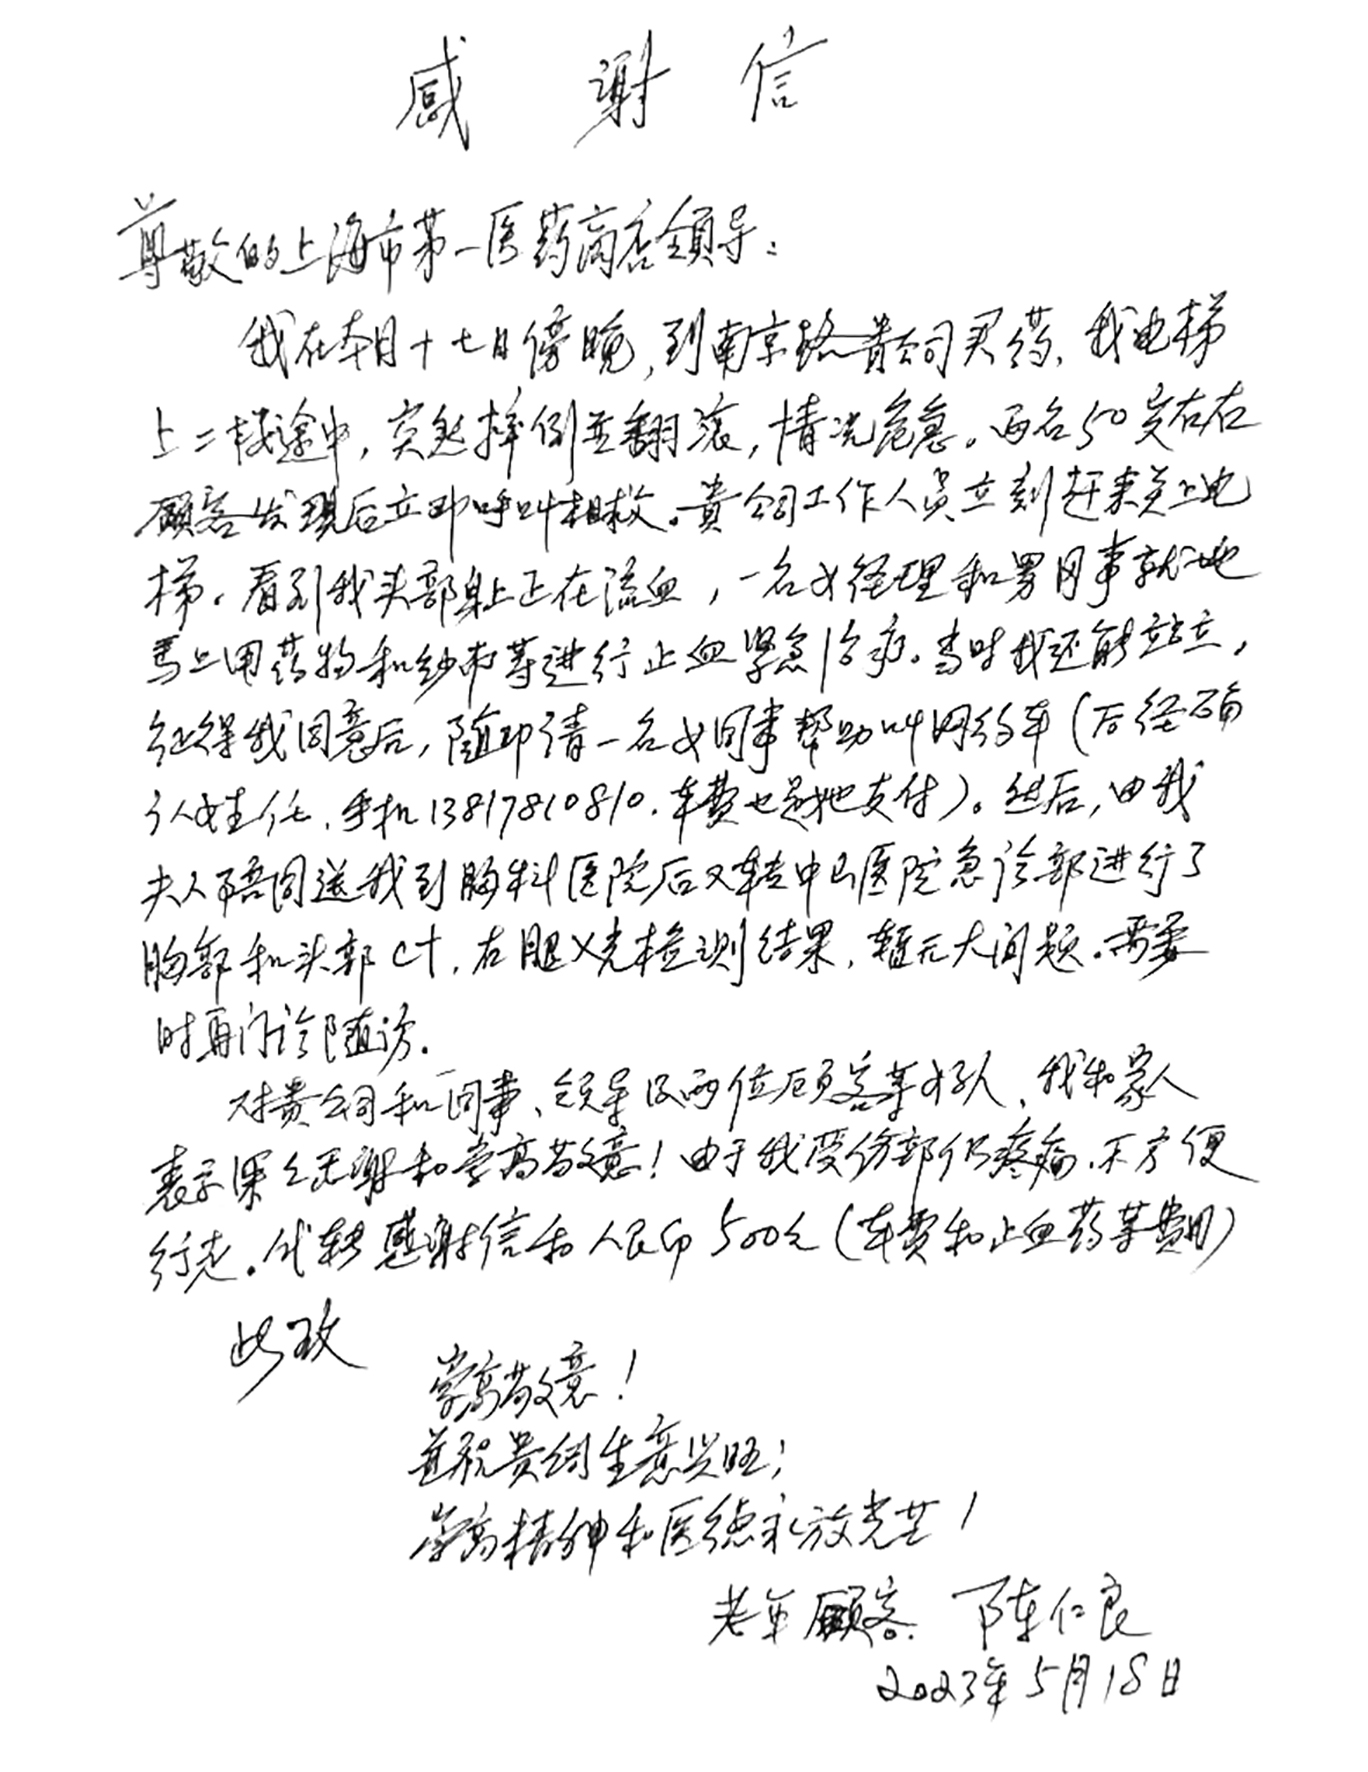 感谢信
尊敬的上海市第一医药商店领导：
我在本月十七日傍晚，到南京路贵公司买药，我电梯
上二楼途中，突然摔倒并翻滚，情况危急。两名50岁左右
顾客发现后立即呼叫相救。贵公司工作人员立刻赶来关上电
梯。看到我头部身上正在流血，一名女经理和男同事就地
马上用药物和纱布等进行止血紧急治疗。当时我还能站立，
征得我同意后，随即请一名女同事帮助叫网约车（后经确
认姓任，手机13817810810，车费也是她支付）。然后，由我
夫人陪同送我到胸科医院后又转中山医院急诊部进行了
胸部和头部CT，右腿X光检测结果，暂无大问题。需要
时再门诊随访。
对贵公司和同事、领导及两位顾客等好人，我和家人
表示深深感谢和崇高敬意！由于我受伤部仍疼痛，不方便
行走。代转感谢信和人民币500元（车费和止血药等费用）
此致
崇高敬意！
并祝贵公司生意兴旺；
崇高精神和医德永放光芒！
老年顾客 陈仁良
2023年5月18日